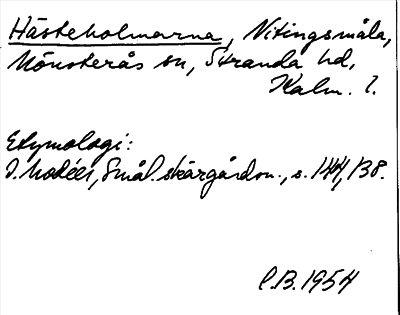 Hästeholmarna, Nitingsmåla,
Mönsterås sn, Stranda hd,
Kalm. l.
Etymologi:
I. Modéer, Smål. skärgårdsn., s. 144, 138.
C.B. 1954